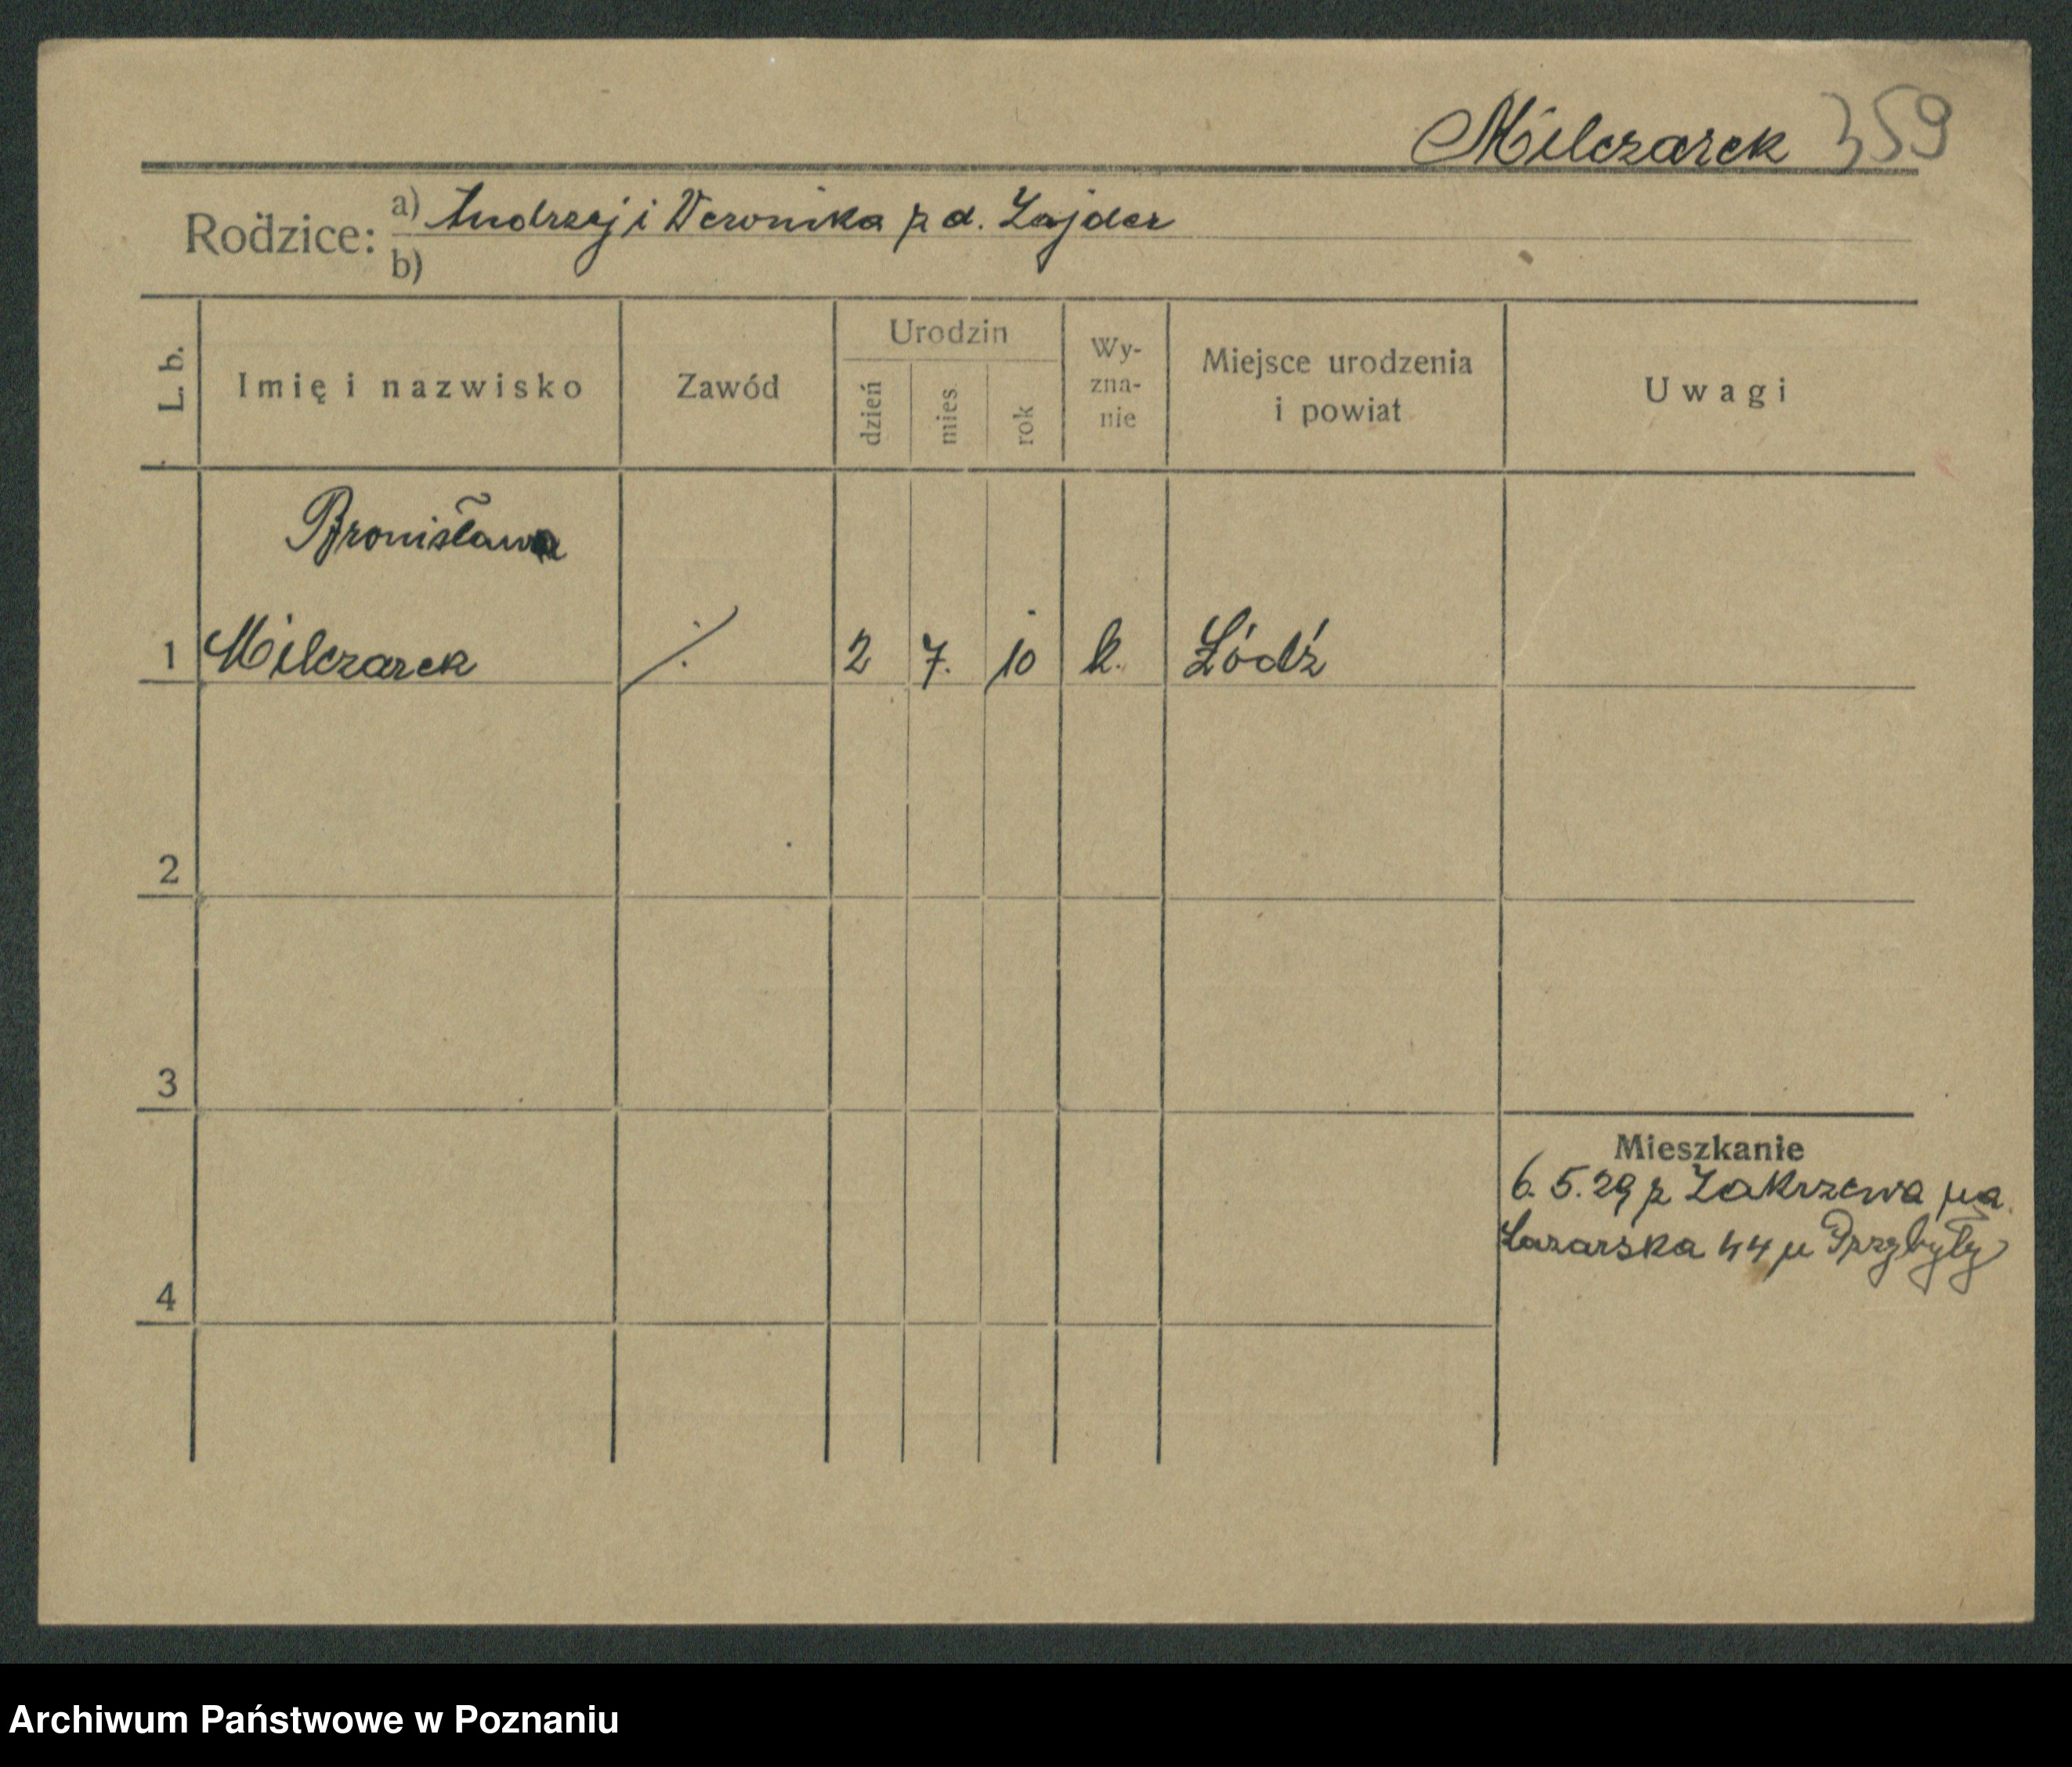 Milczarek 359
Rodzice: a) Andrzej i Weronika z d. Zajder
b)
L. b. Imię i nazwisko Zawód Urodzin dzień mies. rok Wy-zna-nie Miejsce urodzenia i powiat Uwagi
Bronisława
1 Milczarek ./. 2 7. 10 k. Łódź
2
3
Mieszkanie
6. 5. 29 z Zakrzewa na
Łazarska 44 u Przybyły
4
Archiwum Państwowe w Poznaniu